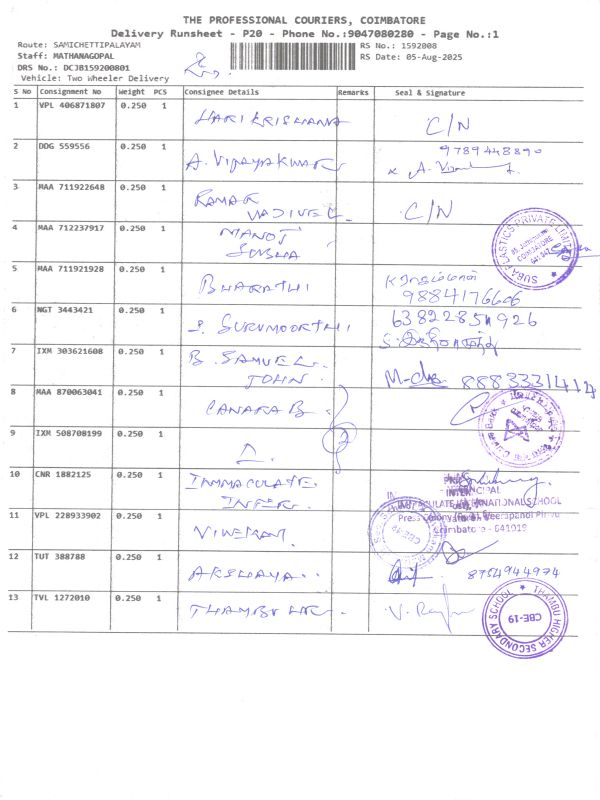 THE PROFESSIONAL COURIERS, COIMBATORE
Delivery Runsheet - P20 - Phone No.:9047080280 - Page No.:1
Route: SAMICHETTIPALAYAM RS No.: 1592008
Staff: MATHANAGOPAL RS Date: 05-Aug-2025
DRS No.: DCJB159200801
Vehicle: Two Wheeler Delivery
S No Consignment No Weight PCS Consignee Details Remarks Seal & Signature
1 VPL 406871807 0.250 1 HARI KRISHANA C/N
2 DDG 559556 0.250 1 A. VIJAYAKUMAR 9789448890
3 MAA 711922648 0.250 1 RAMAR C/N
VADIVEL
4 MAA 712237917 0.250 1 MANOJ
SUBHA
SUBA PLASTICS PRIVATE LIMITED
COIMBATORE
5 MAA 711921928 0.250 1 BHARATHI
9884176606
6 NGT 3443421 0.250 1 S. GURUMOORTHI
7 IXM 303621608 0.250 1 B. SAMUEL 8883331414
JOHN
8 MAA 870063041 0.250 1 CANARA B
9 IXM 508708199 0.250 1
10 CNR 1882125 0.250 1 IMMACULATE
INTER
INTERNATIONAL SCHOOL
Coimbatore - 641019
11 VPL 228933902 0.250 1 VIVEKANT
CBE-19
12 TUT 388788 0.250 1 AKSHAYA 8754944974
13 TVL 1272010 0.250 1 THAMBU V. Raj
THAMBU HIGHER SECONDARY SCHOOL
CBE-19